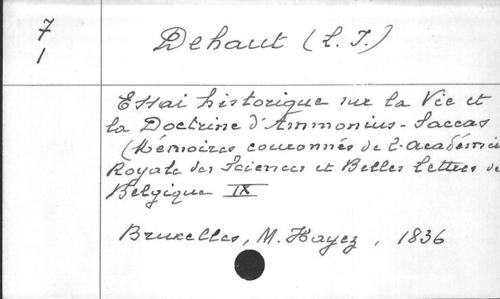 7
1
Dehaut (L. J.)
Essai historique sur la Vie et
la Doctrine d'Ammonius-Saccas
(Mémoires couronnés de l'Académie
Royale des Sciences et Belles Lettres de
Belgique IX
Bruxelles, M. Hayez, 1836